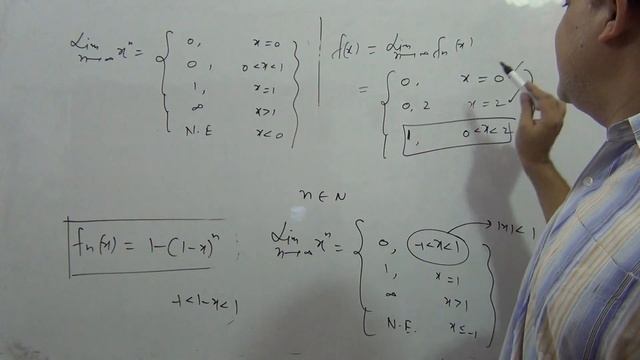 Lim n→∞ xⁿ = { 0, x=0
0, 0<x<1
1, x=1
∞ x>1
N.E x<0 }
f(x) = Lim n→∞ fn(x)
= { 0, x=0
0, 2 x=2
1, 0<x<2
n∈N
fn(x) = 1-(1-x)ⁿ
-1<1-x<1
Lim n→∞ xⁿ = { 0, -1<x<1 → |x|<1
1, x=1
∞ x>1
N.E. x≤-1 }